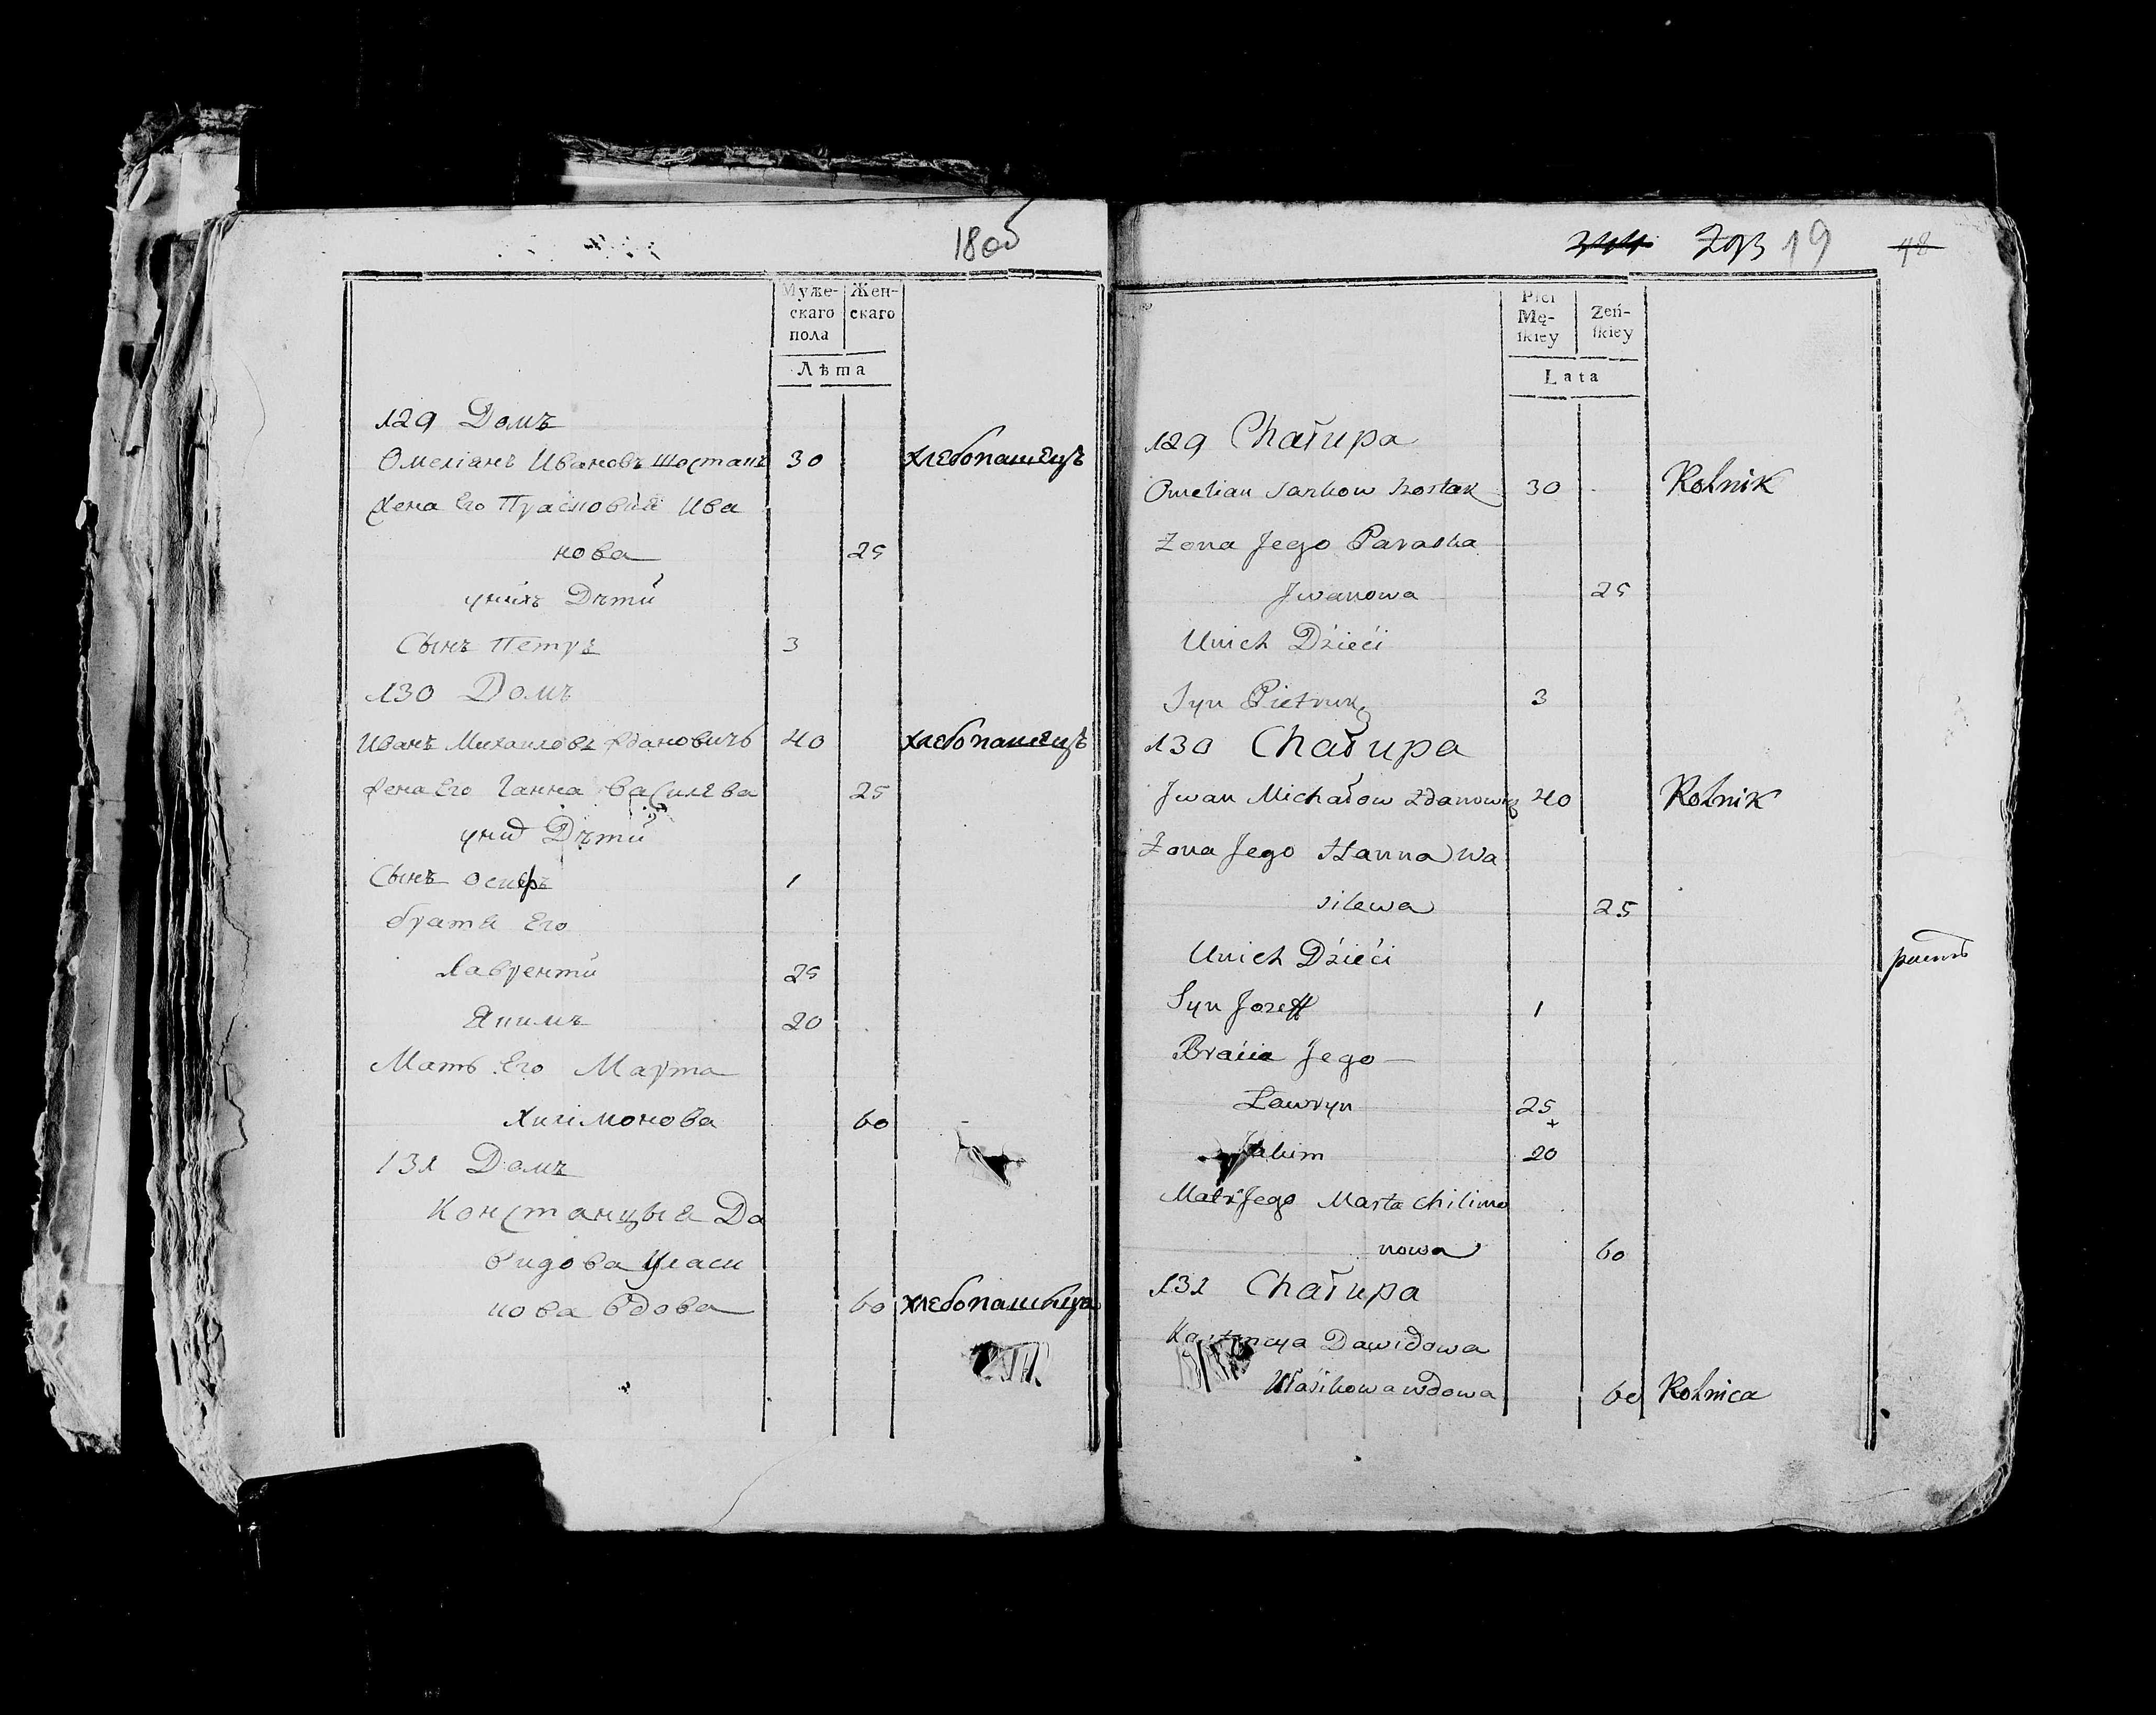 180об
Муже-
скаго
пола
Жен-
скаго
Лѣта
129 Домъ
Омеліанъ Ивановъ Шостакъ 30 хлебопашецъ
Жена Его Прасковія Ива
нова 25
унихъ Дѣти
Сынъ Петръ 3
130 Домъ
Иванъ Михаиловъ Здановичъ 40 хлебопашецъ
Жена Его Ганна Василева 25
уних Дѣти
Сынъ Осифъ 1
братья Его
Лаврентій 25
Якимъ 20
Мать Его Марта
Хилимонова 60
131 Домъ
Констанцыя Да
видова Уласи
кова вдова 60 хлебопашыца
293 19 48
Płci
Mę-
ſkiey
Zeń-
ſkiey
Lata
129 Chałupa
Omelian Jankow Szostak 30 Rolnik
Zona Jego Paraska
Jwanowa 25
Unich Dzieći
Syn Pietruk 3
130 Chałupa
Jwan Michałow Zdanowicz 40 Rolnik
Zona Jego Hanna Wa
silewa 25
Unich Dzieći
Syn Jozeff 1
Braćia Jego
Ławryn 25
+
Jakim 20
Matka Jego Marta Chilimo
nowa 60
131 Chałupa
Dawidowa
Własikowa wdowa 60 Rolnica